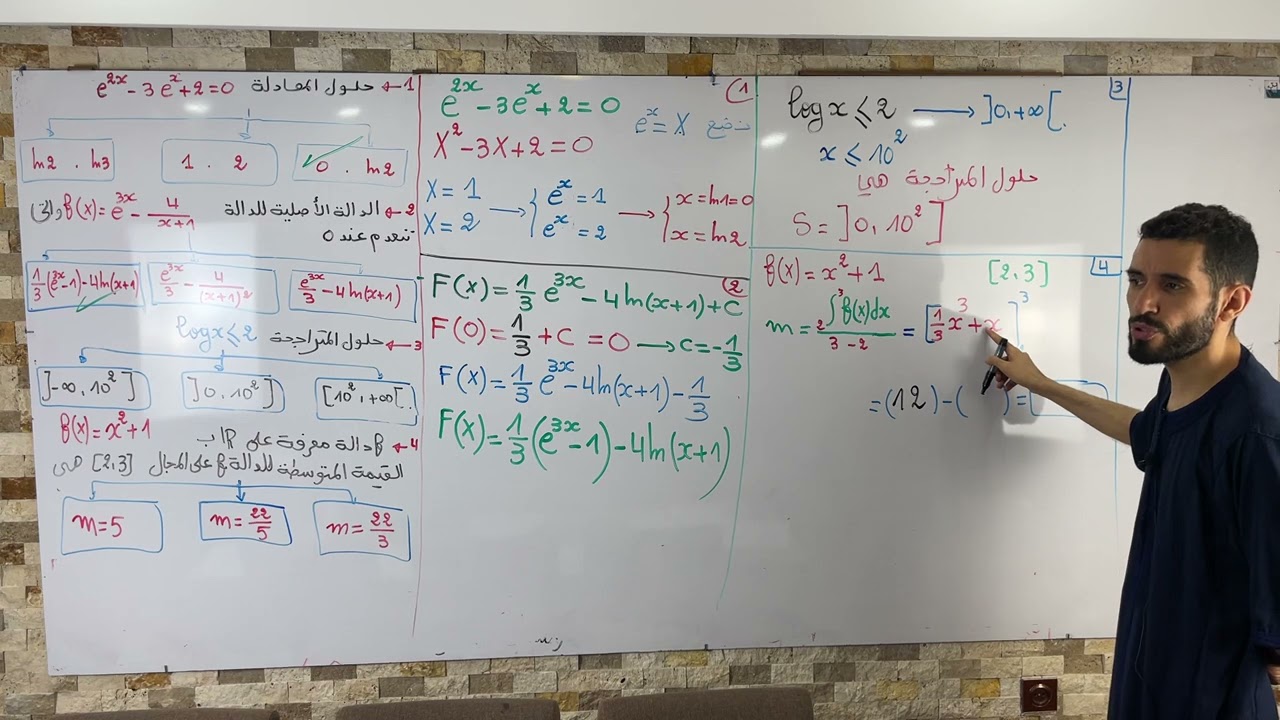 1 ← حلول المعادلة e^{2x} - 3e^x + 2 = 0
ln2 . ln3
1 . 2
0 . ln2
2 ← الدالة الأصلية للدالة f(x) = e^{3x} - \frac{4}{x+1} والتي
تنعدم عند 0
\frac{1}{3}(e^{3x}-1)-4ln(x+1)
\frac{e^{3x}}{3} - \frac{4}{(x+1)^2}
\frac{e^{3x}}{3} - 4ln(x+1)
3 ← حلول المتراجحة log x ⩽ 2
]-∞, 10^2]
]0, 10^2]
[10^2, +∞[.
4 ← f دالة معرفة على IR ب f(x) = x^2+1
القيمة المتوسطة للدالة f على المجال [2.3] هي
m = 5
m = \frac{22}{5}
m = \frac{22}{3}
1
e^{2x} - 3e^x + 2 = 0
نضع e^x = X
X^2 - 3X + 2 = 0
X = 1
X = 2
→ { e^x = 1
e^x = 2
→ { x = ln1 = 0
x = ln2
2
F(x) = \frac{1}{3} e^{3x} - 4ln(x+1) + C
F(0) = \frac{1}{3} + C = 0 → C = -\frac{1}{3}
F(x) = \frac{1}{3} e^{3x} - 4ln(x+1) - \frac{1}{3}
F(x) = \frac{1}{3}(e^{3x} - 1) - 4ln(x+1)
3
log x ⩽ 2 → ]0, +∞[.
x ⩽ 10^2
حلول المتراجحة هي
S = ]0, 10^2]
4
f(x) = x^2 + 1 [2.3]
m = \frac{∫_2^3 f(x)dx}{3-2} = [\frac{1}{3}x^3 + x]^3
= (12) - ( ) =